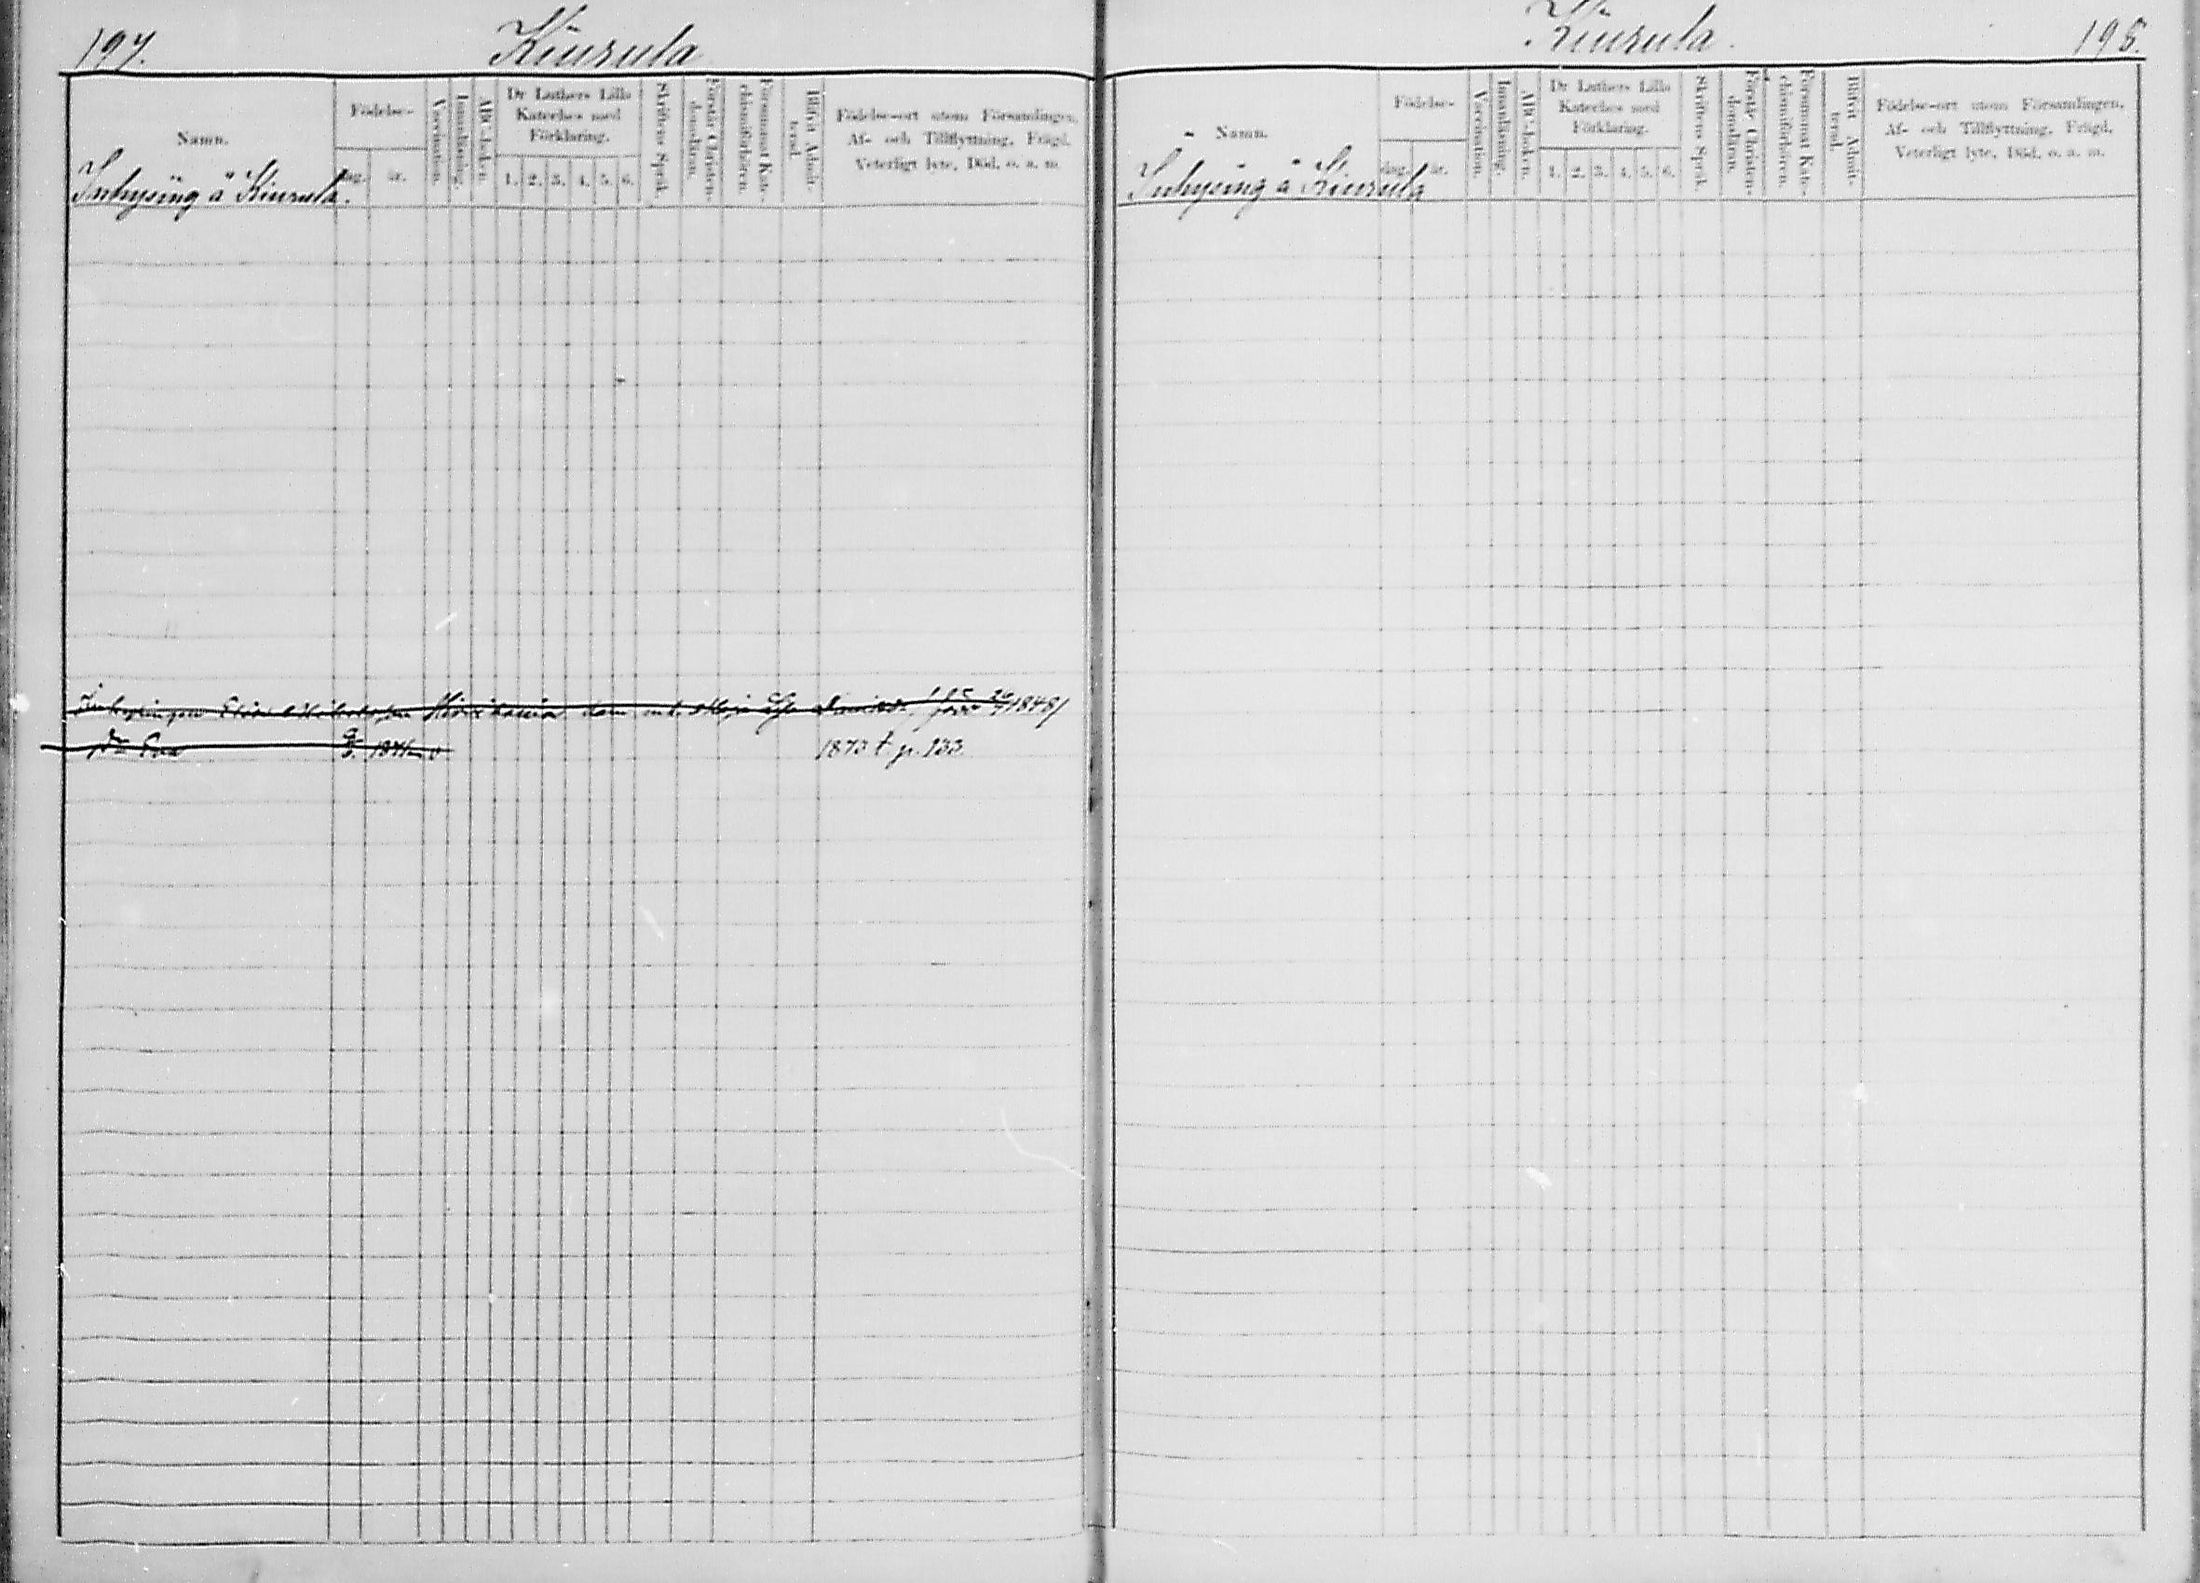 197.
Kiurula
Namn.
Födelse-
dag.
år.
Vaccination.
Innanläsning.
ABC-boken.
Dr Luthers Lilla
Kateches med
Förklaring.
1. 2. 3. 4. 5. 6.
Skriftens Språk.
Förstår Christen-
domsläran.
Försummat Kate-
chismiförhören.
Blifvit Admit-
terad.
Födelse-ort utom Församlingen,
Af- och Tillflyttning, Frägd,
Veterligt lyte, Död, o. a. m.
Inhysing å Kiurula.
1848/
dr Eva 1841 v 1873 t. p. 133
Kiurula.
198.
Namn.
Födelse-
dag.
år.
Vaccination.
Innanläsning.
ABC-boken.
Dr Luthers Lilla
Kateches med
Förklaring.
1. 2. 3. 4. 5. 6.
Skriftens Språk.
Förstår Christen-
domsläran.
Försummat Kate-
chismiförhören.
Blifvit Admit-
terad.
Födelse-ort utom Församlingen,
Af- och Tillflyttning, Frägd,
Veterligt lyte, Död, o. a. m.
Inhysing å Kiurula